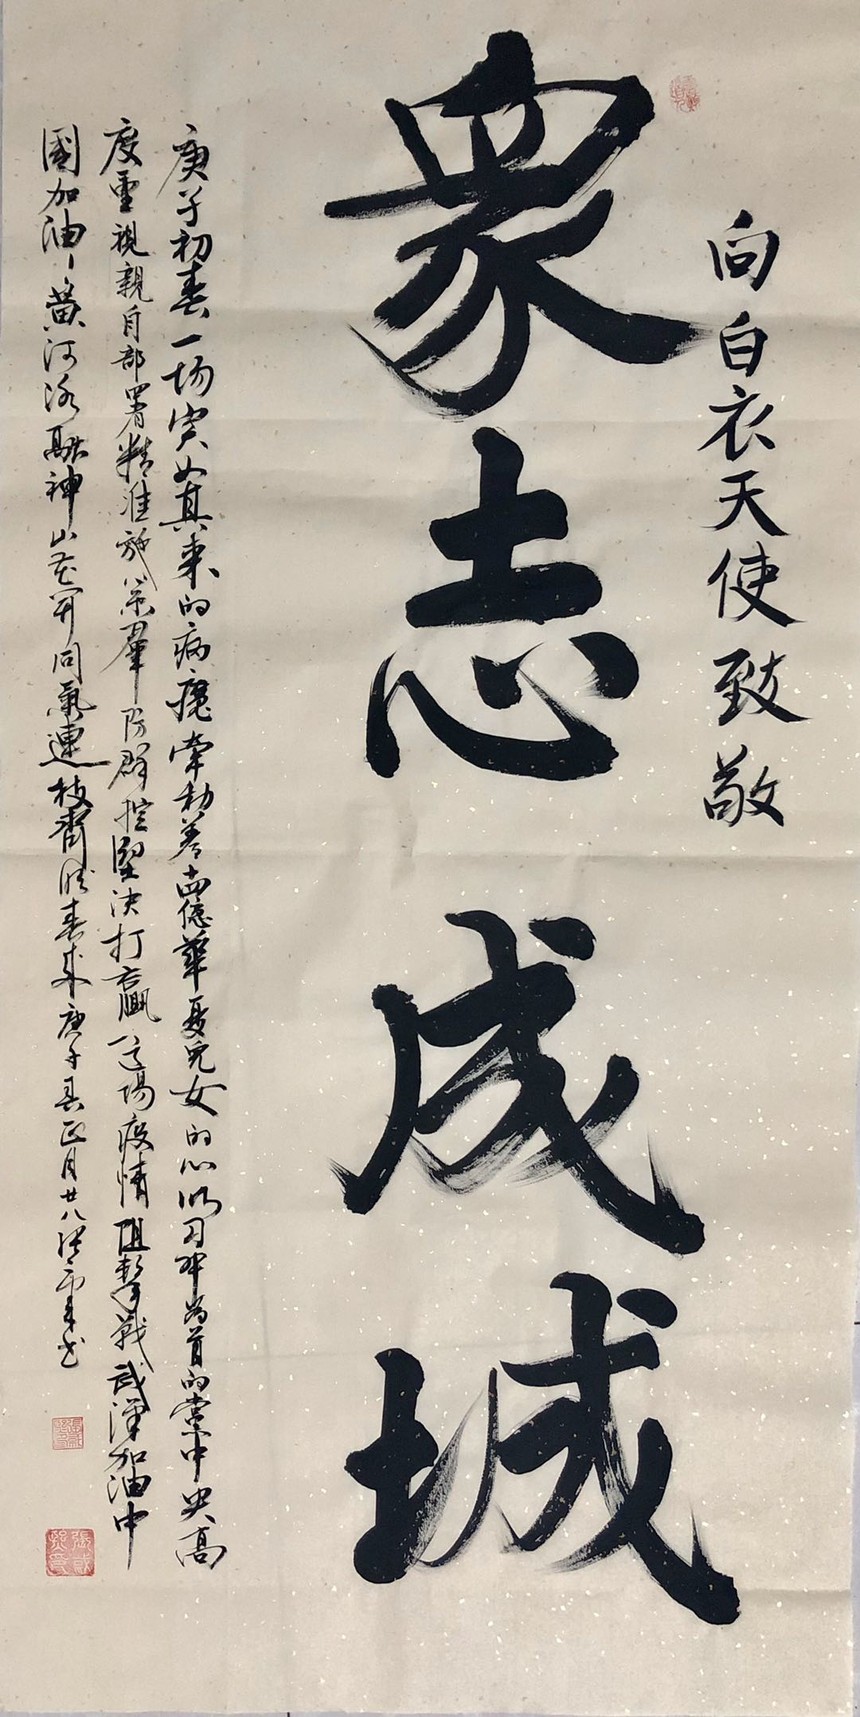 向白衣天使致敬
衆志成城
庚子初春一场突如其来的病魔牵动着十四亿华夏儿女的心以习 为首的党中央高
度重视親自部署精准施策羣防群控坚决打赢这场疫情阻擊战武漢加油中
國加油 黄河 神山 開同氣連枝齊 春来庚子年正月廿八 书